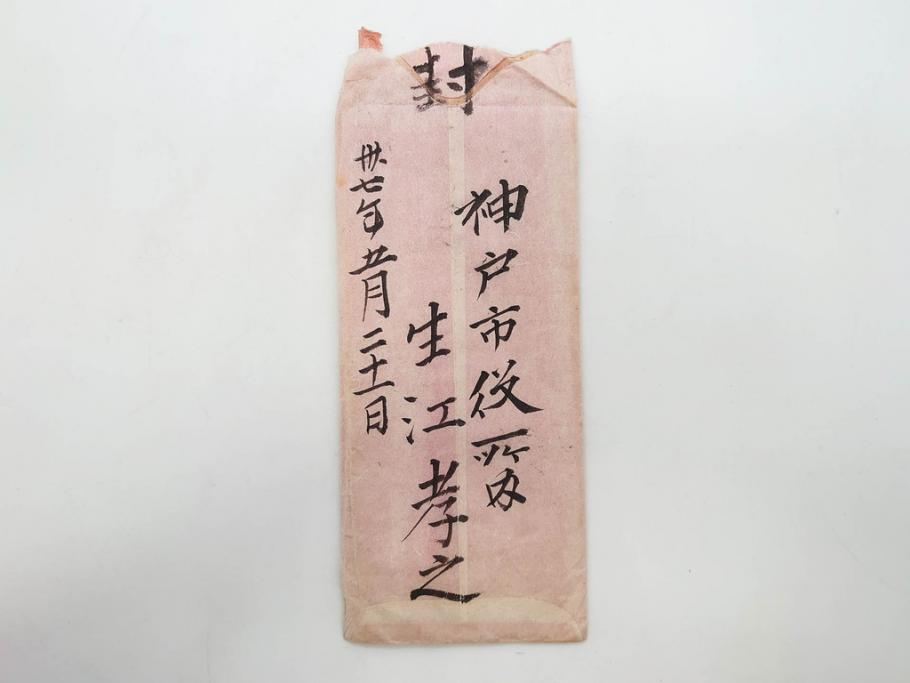 封
神戸市役所内
生江孝之
卅七年五月二十一日